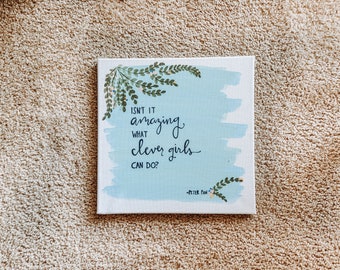 ISN'T IT
amazing
WHAT
clever girls
CAN DO?
-PETER PAN